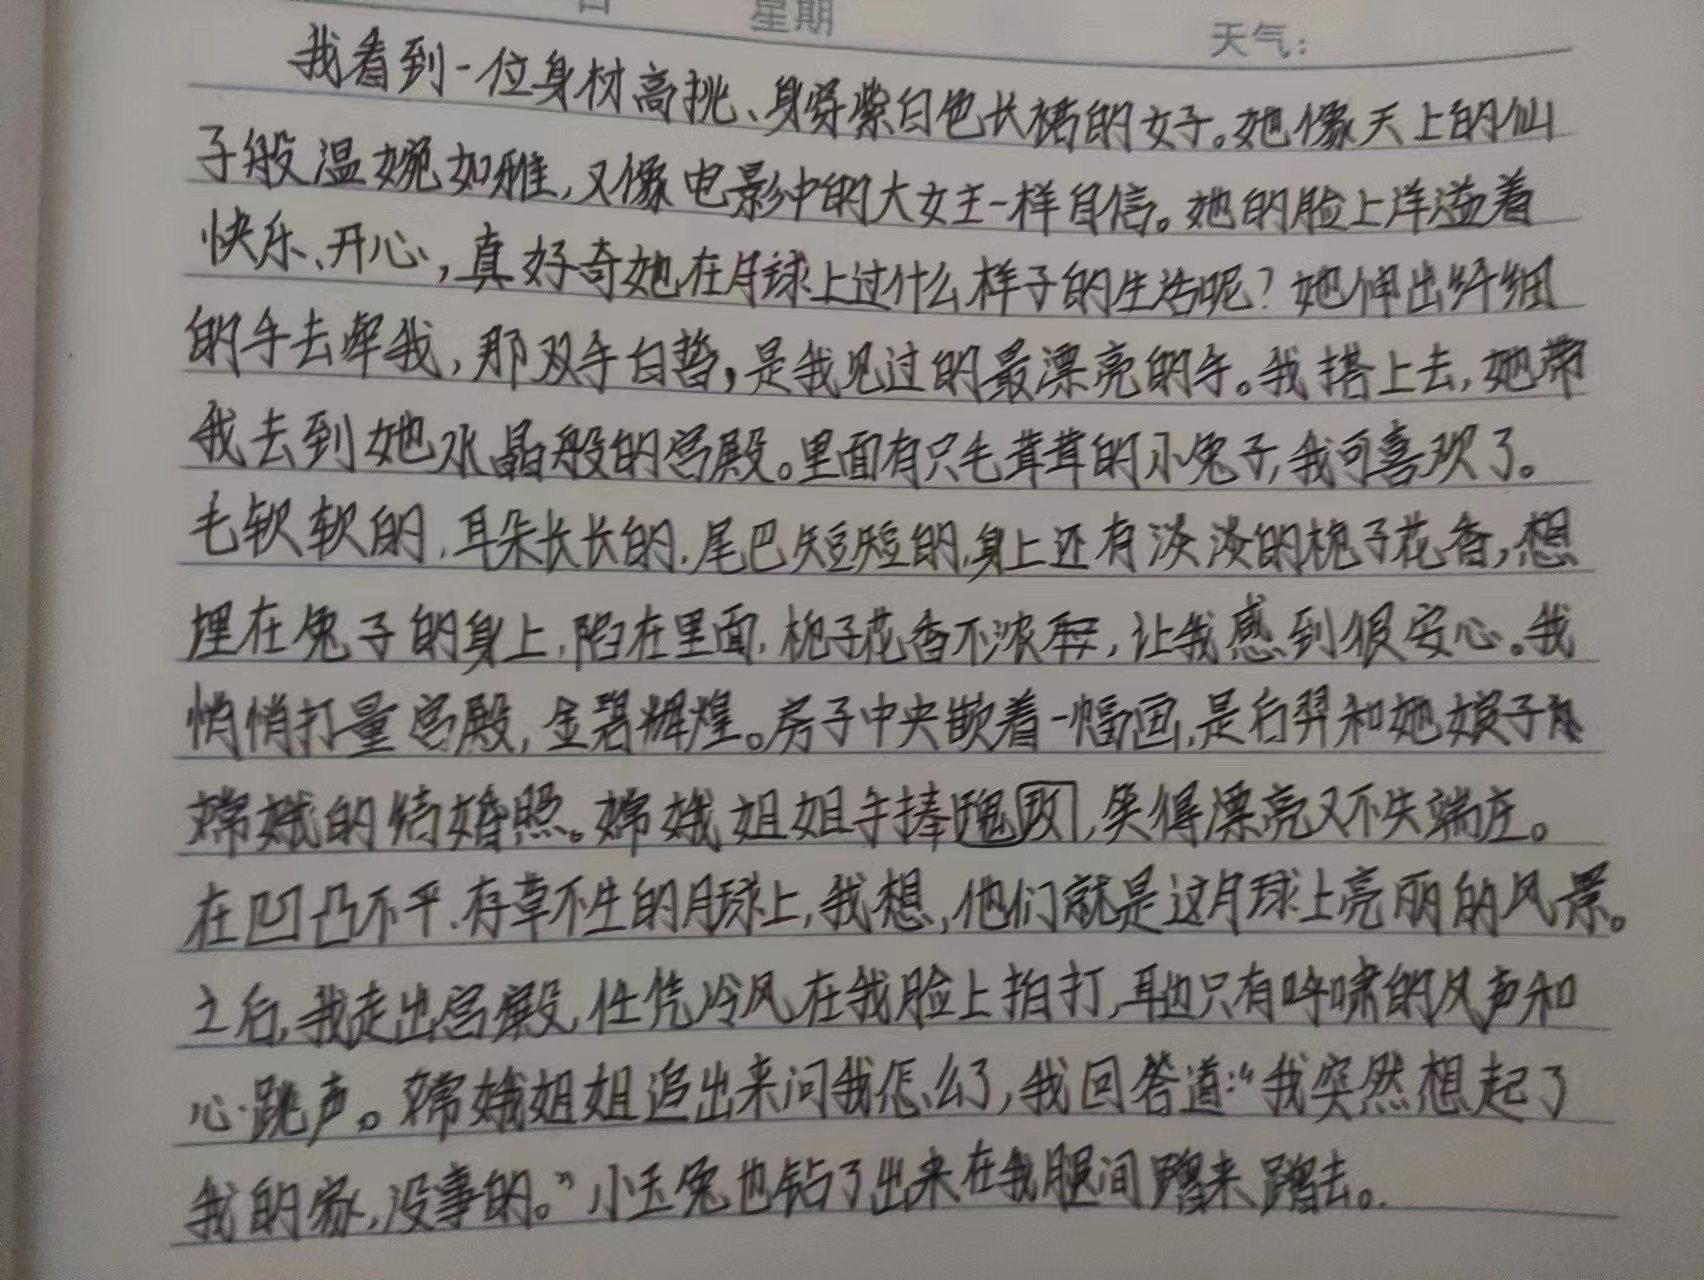 日 星期 天气：
我看到一位身材高挑、身穿紫白色长裙的女子。她像天上的仙
子般温婉如雅，又像电影中的大女主一样自信。她的脸上洋溢着
快乐、开心，真好奇她在月球上过什么样子的生活呢？她伸出纤细
的手去牵我，那双手白皙，是我见过的最漂亮的手。我搭上去，她带
我去到她水晶般的宫殿。里面有只毛茸茸的小兔子，我可喜欢了。
毛软软的，耳朵长长的，尾巴短短的，身上还有淡淡的栀子花香，想
埋在兔子的身上，陷在里面，栀子花香不浓郁，让我感到很安心。我
悄悄打量宫殿，金碧辉煌。房子中央嵌着一幅画，是后羿和她妻子
嫦娥的结婚照。嫦娥姐姐手捧瑰玫，笑得漂亮又不失端庄。
在凹凸不平、存草不生的月球上，我想，他们就是这月球上亮丽的风景。
之后，我走出宫殿，任凭冷风在我脸上拍打，耳边只有呼啸的风声和
心跳声。嫦娥姐姐追出来问我怎么了，我回答道：“我突然想起了
我的家，没事的。”小玉兔也钻了出来在我腿间蹭来蹭去。